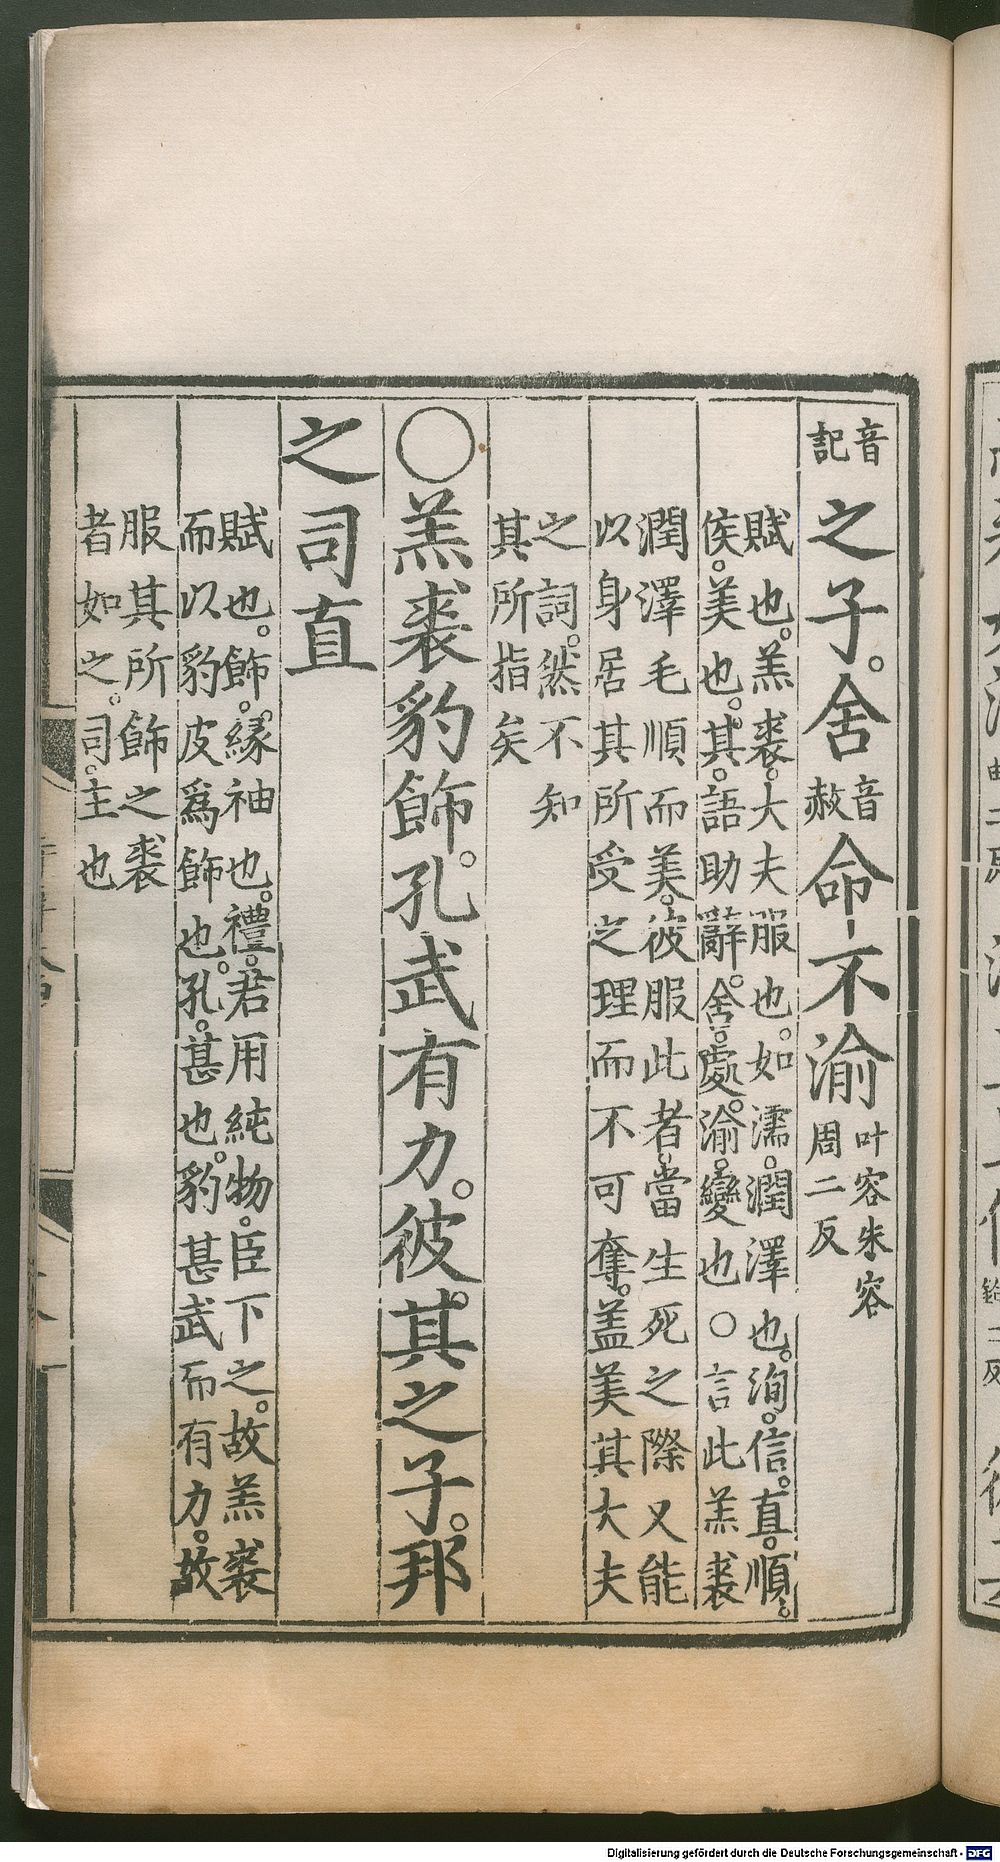 音記之子。舍音赦命不渝叶容朱容周二反
賦也。羔裘。大夫服也。如濡。潤澤也。洵。信。直。順。
侯。美也。其。語助辭。舍。處。渝。變也○言此羔裘
潤澤毛順而美。彼服此者。當生死之際又能
以身居其所受之理而不可奪。盖美其大夫
之詞。然不知
其所指矣
○羔裘豹飾。孔武有力。彼其之子。邦
之司直
賦也。飾。緣袖也。禮。君用純物。臣下之。故羔裘
而以豹皮爲飾也。孔。甚也。豹甚武而有力。故
服其所飾之裘
者如之。司。主也
Digitalisierung gefördert durch die Deutsche Forschungsgemeinschaft - DFG